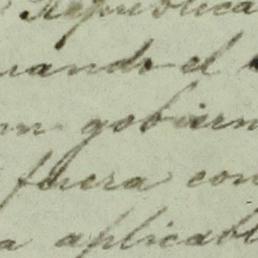 Republica
uando el
un gobiern
fuera con
a aplicabl